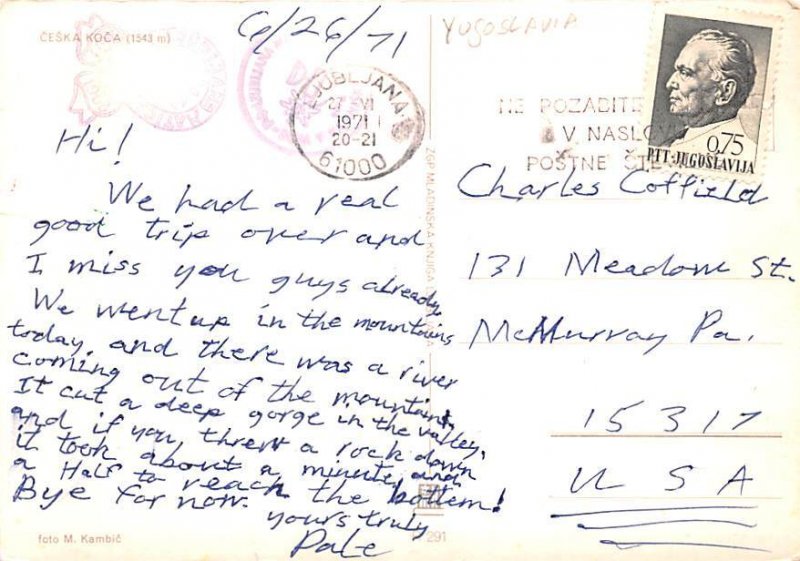 6/26/71
Yugoslavia
ČEŠKA KOČA (1543 m)
LJUBLJANA
27 VI
1971
20-21
61000
NE POZABITE
V NASLOV
POŠTNE
0,75
PTT-JUGOSLAVIJA
Hi!
We had a real
good trip over and
I miss you guys already.
We went up in the mountains
today, and there was a river
coming out of the mountains.
It cut a deep gorge in the valley,
and if you, threw a rock down
it took about a minute, and
a Half to reach the bottem!
Bye for now.
yours truly
Dale
Charles Coffield
131 Meadow St.
McMurray Pa.
15317
USA
ZGP MLADINSKA KNJIGA
foto M. Kambič
291